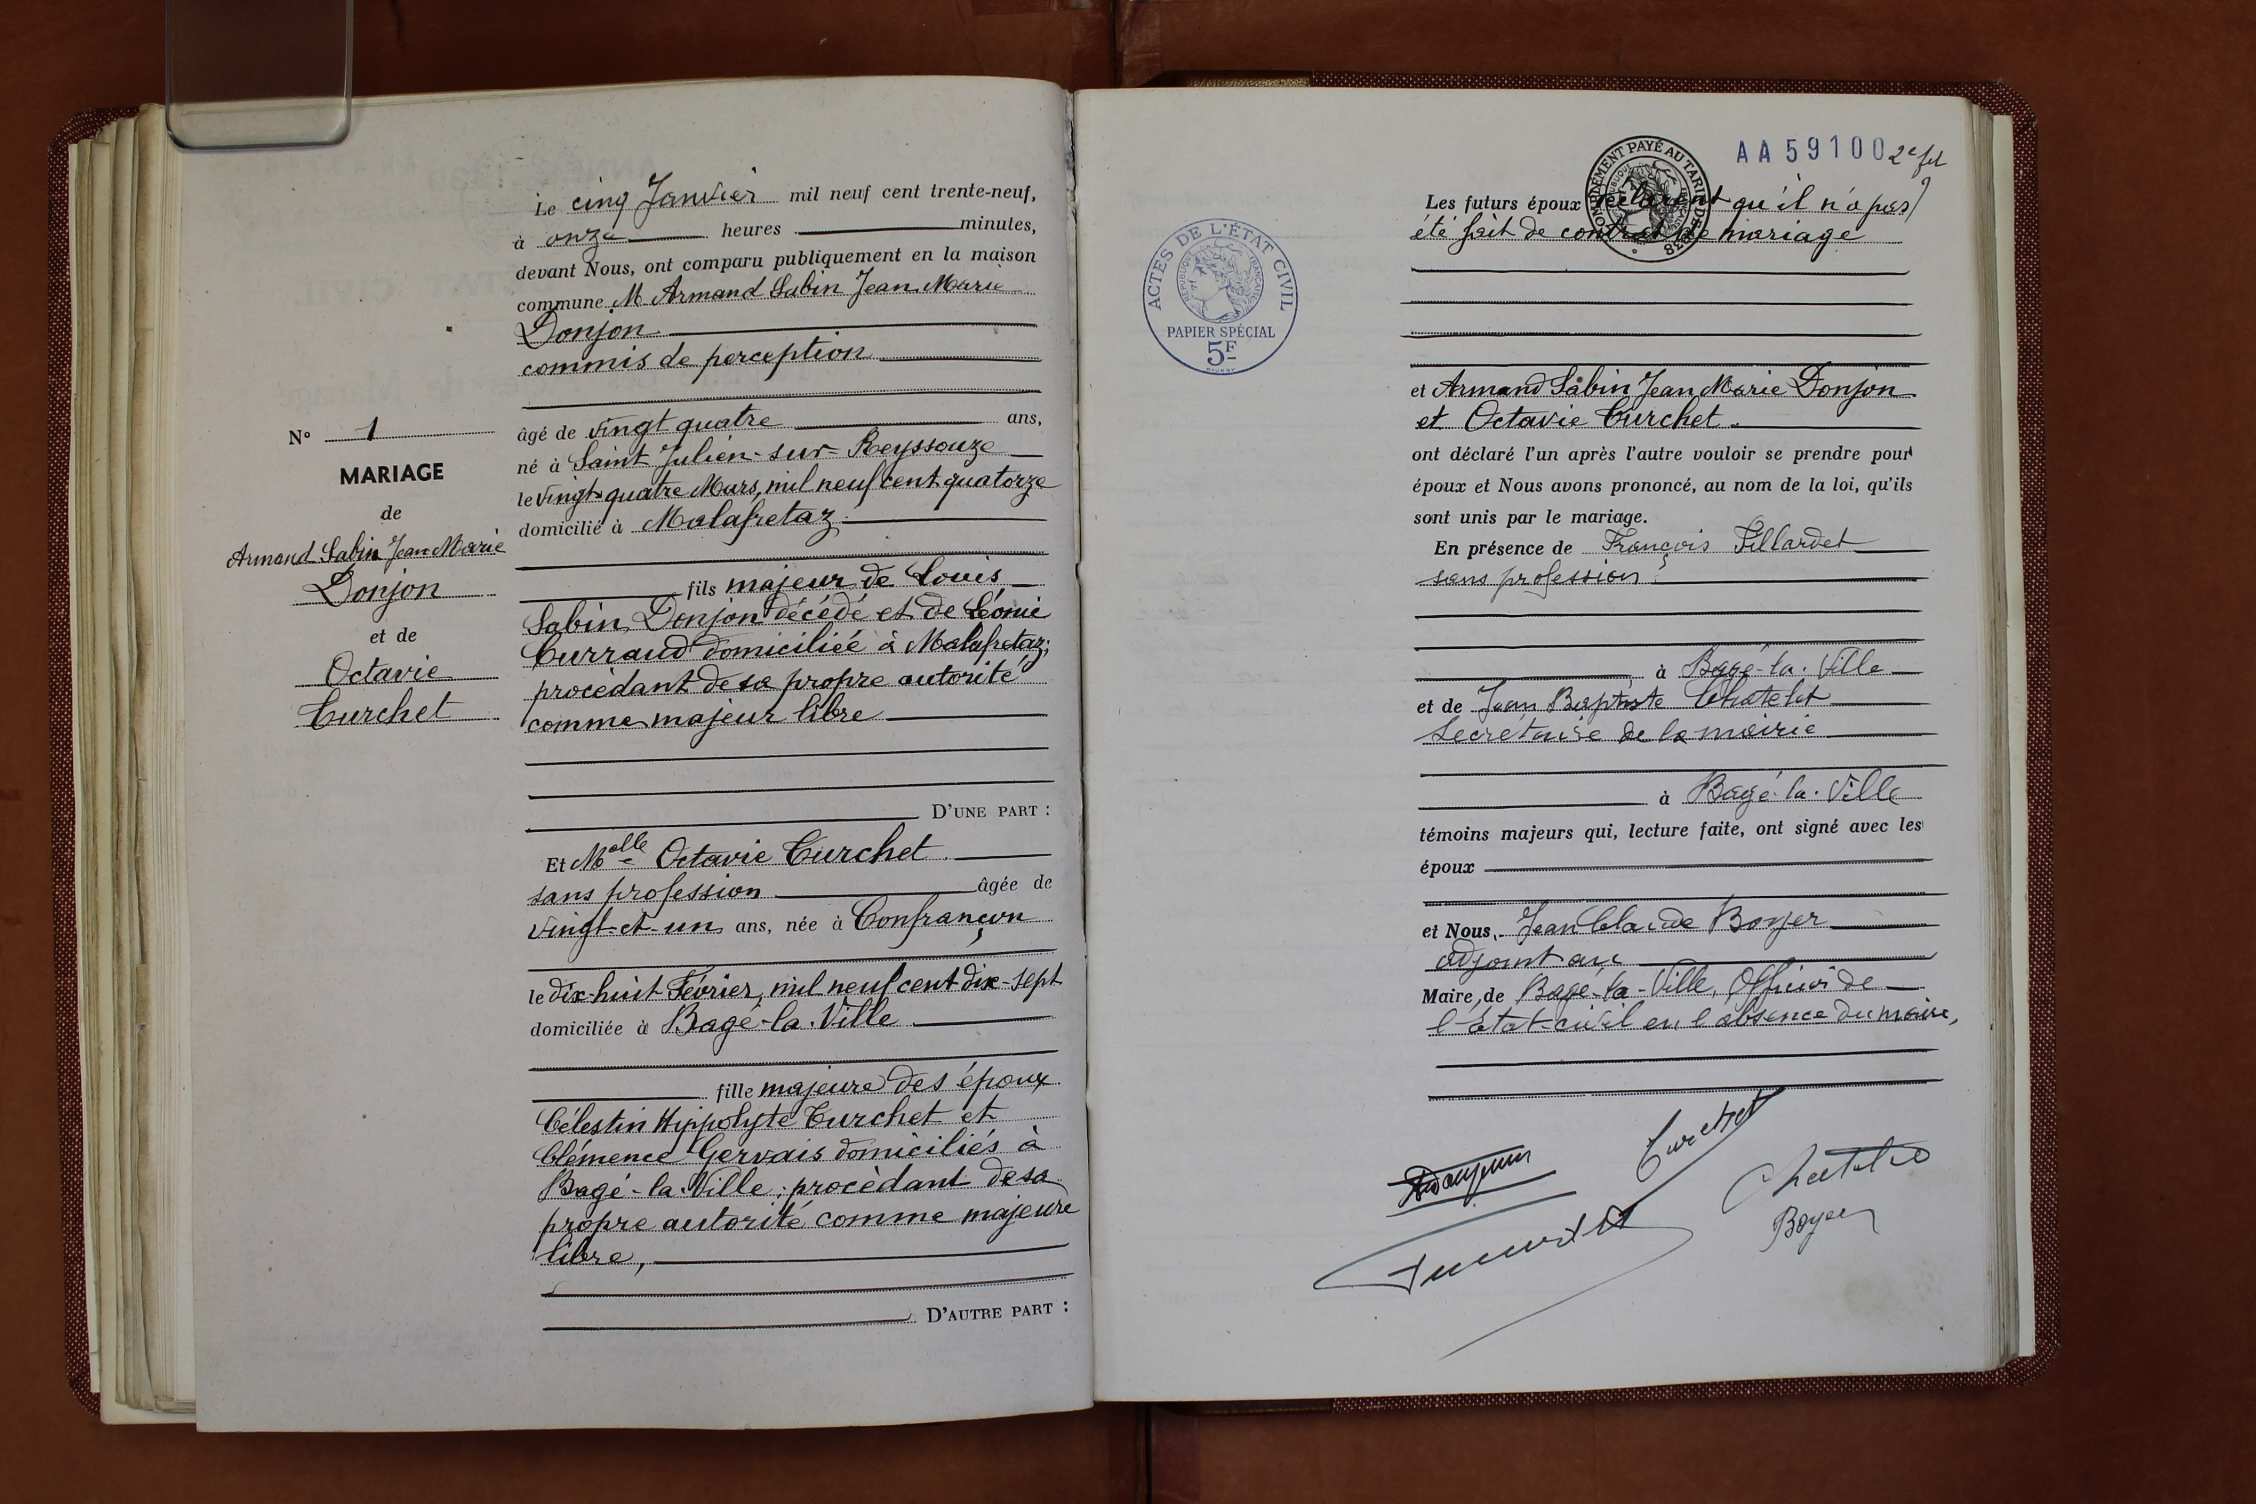 Le cinq Janvier mil neuf cent trente-neuf,
à onze heures minutes,
devant Nous, ont comparu publiquement en la maison
commune M Armand Sabin Jean Marie
Donjon
commis de perception
âgé de vingt quatre ans,
né à Saint Julien-sur-Reyssouze
le vingt-quatre Mars, mil neuf cent quatorze
domicilié à Malafretaz
fils majeur de Louis
Sabin Donjon décédé et de Léonie
Curraud domiciliée à Malafretaz;
procédant de sa propre autorité
comme majeur libre
D'UNE PART :
Et Melle Octavie Curchet
sans profession âgée de
vingt-et-un ans, née à Confrançon
le dix-huit Février, mil neuf cent dix-sept
domiciliée à Bagé-la-Ville
fille majeure des époux
Célestin Hippolyte Curchet et
Clémence Gervais domiciliés à
Bagé-la-Ville; procédant de sa
propre autorité comme majeure
libre,
D'AUTRE PART :
N° 1
MARIAGE
de
Armand Sabin Jean Marie
Donjon
et de
Octavie
Curchet
ACTES DE L'ÉTAT CIVIL
RÉPUBLIQUE FRANÇAISE
PAPIER SPÉCIAL
5F
AA 59100 2e
PAYÉ AU TARIF DE 1938
Les futurs époux déclarent qu'il n'a pas
été fait de contrat de mariage
et Armand Sabin Jean Marie Donjon
et Octavie Curchet.
ont déclaré l'un après l'autre vouloir se prendre pour
époux et Nous avons prononcé, au nom de la loi, qu'ils
sont unis par le mariage.
En présence de François Fillardet
sans profession
à Bagé-la-Ville
et de Jean Baptiste Chatelet
Secrétaire de la mairie
à Bagé-la-Ville
témoins majeurs qui, lecture faite, ont signé avec les
époux
et Nous, Jean Claude Boyer
adjoint au
Maire, de Bagé-la-Ville, Officier de
l'État-civil en l'absence du maire,
Curchet
Boyer